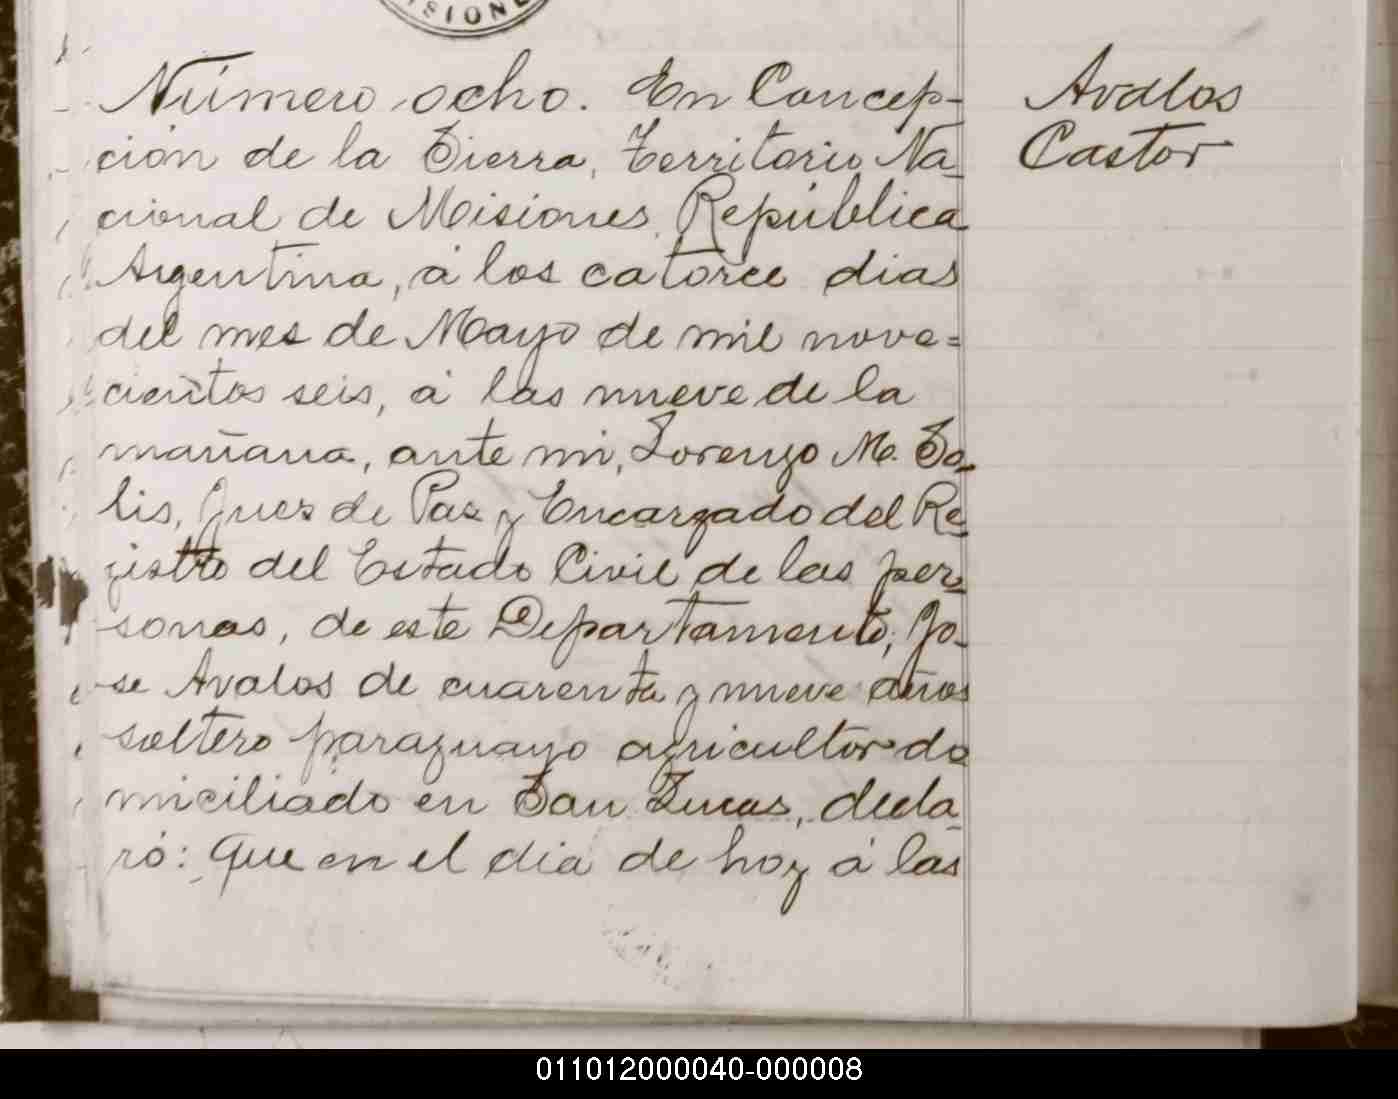 MISIONES
Número ocho. En Concep-
ción de la Sierra, Territorio Na-
cional de Misiones, República
Argentina, á los catorce dias
del mes de Mayo de mil nove=
cientos seis, á las nueve de la
mañana, ante mi, Lorenzo M. So-
lis, Juez de Paz y Encargado del Re-
gistro del Estado Civil de las per-
sonas, de este Departamento, Jo-
se Avalos de cuarenta y nueve años
soltero paraguayo agricultor do
miciliado en San Lucas, decla-
ró: Que en el dia de hoy á las
Avalos
Castor
011012000040-000008